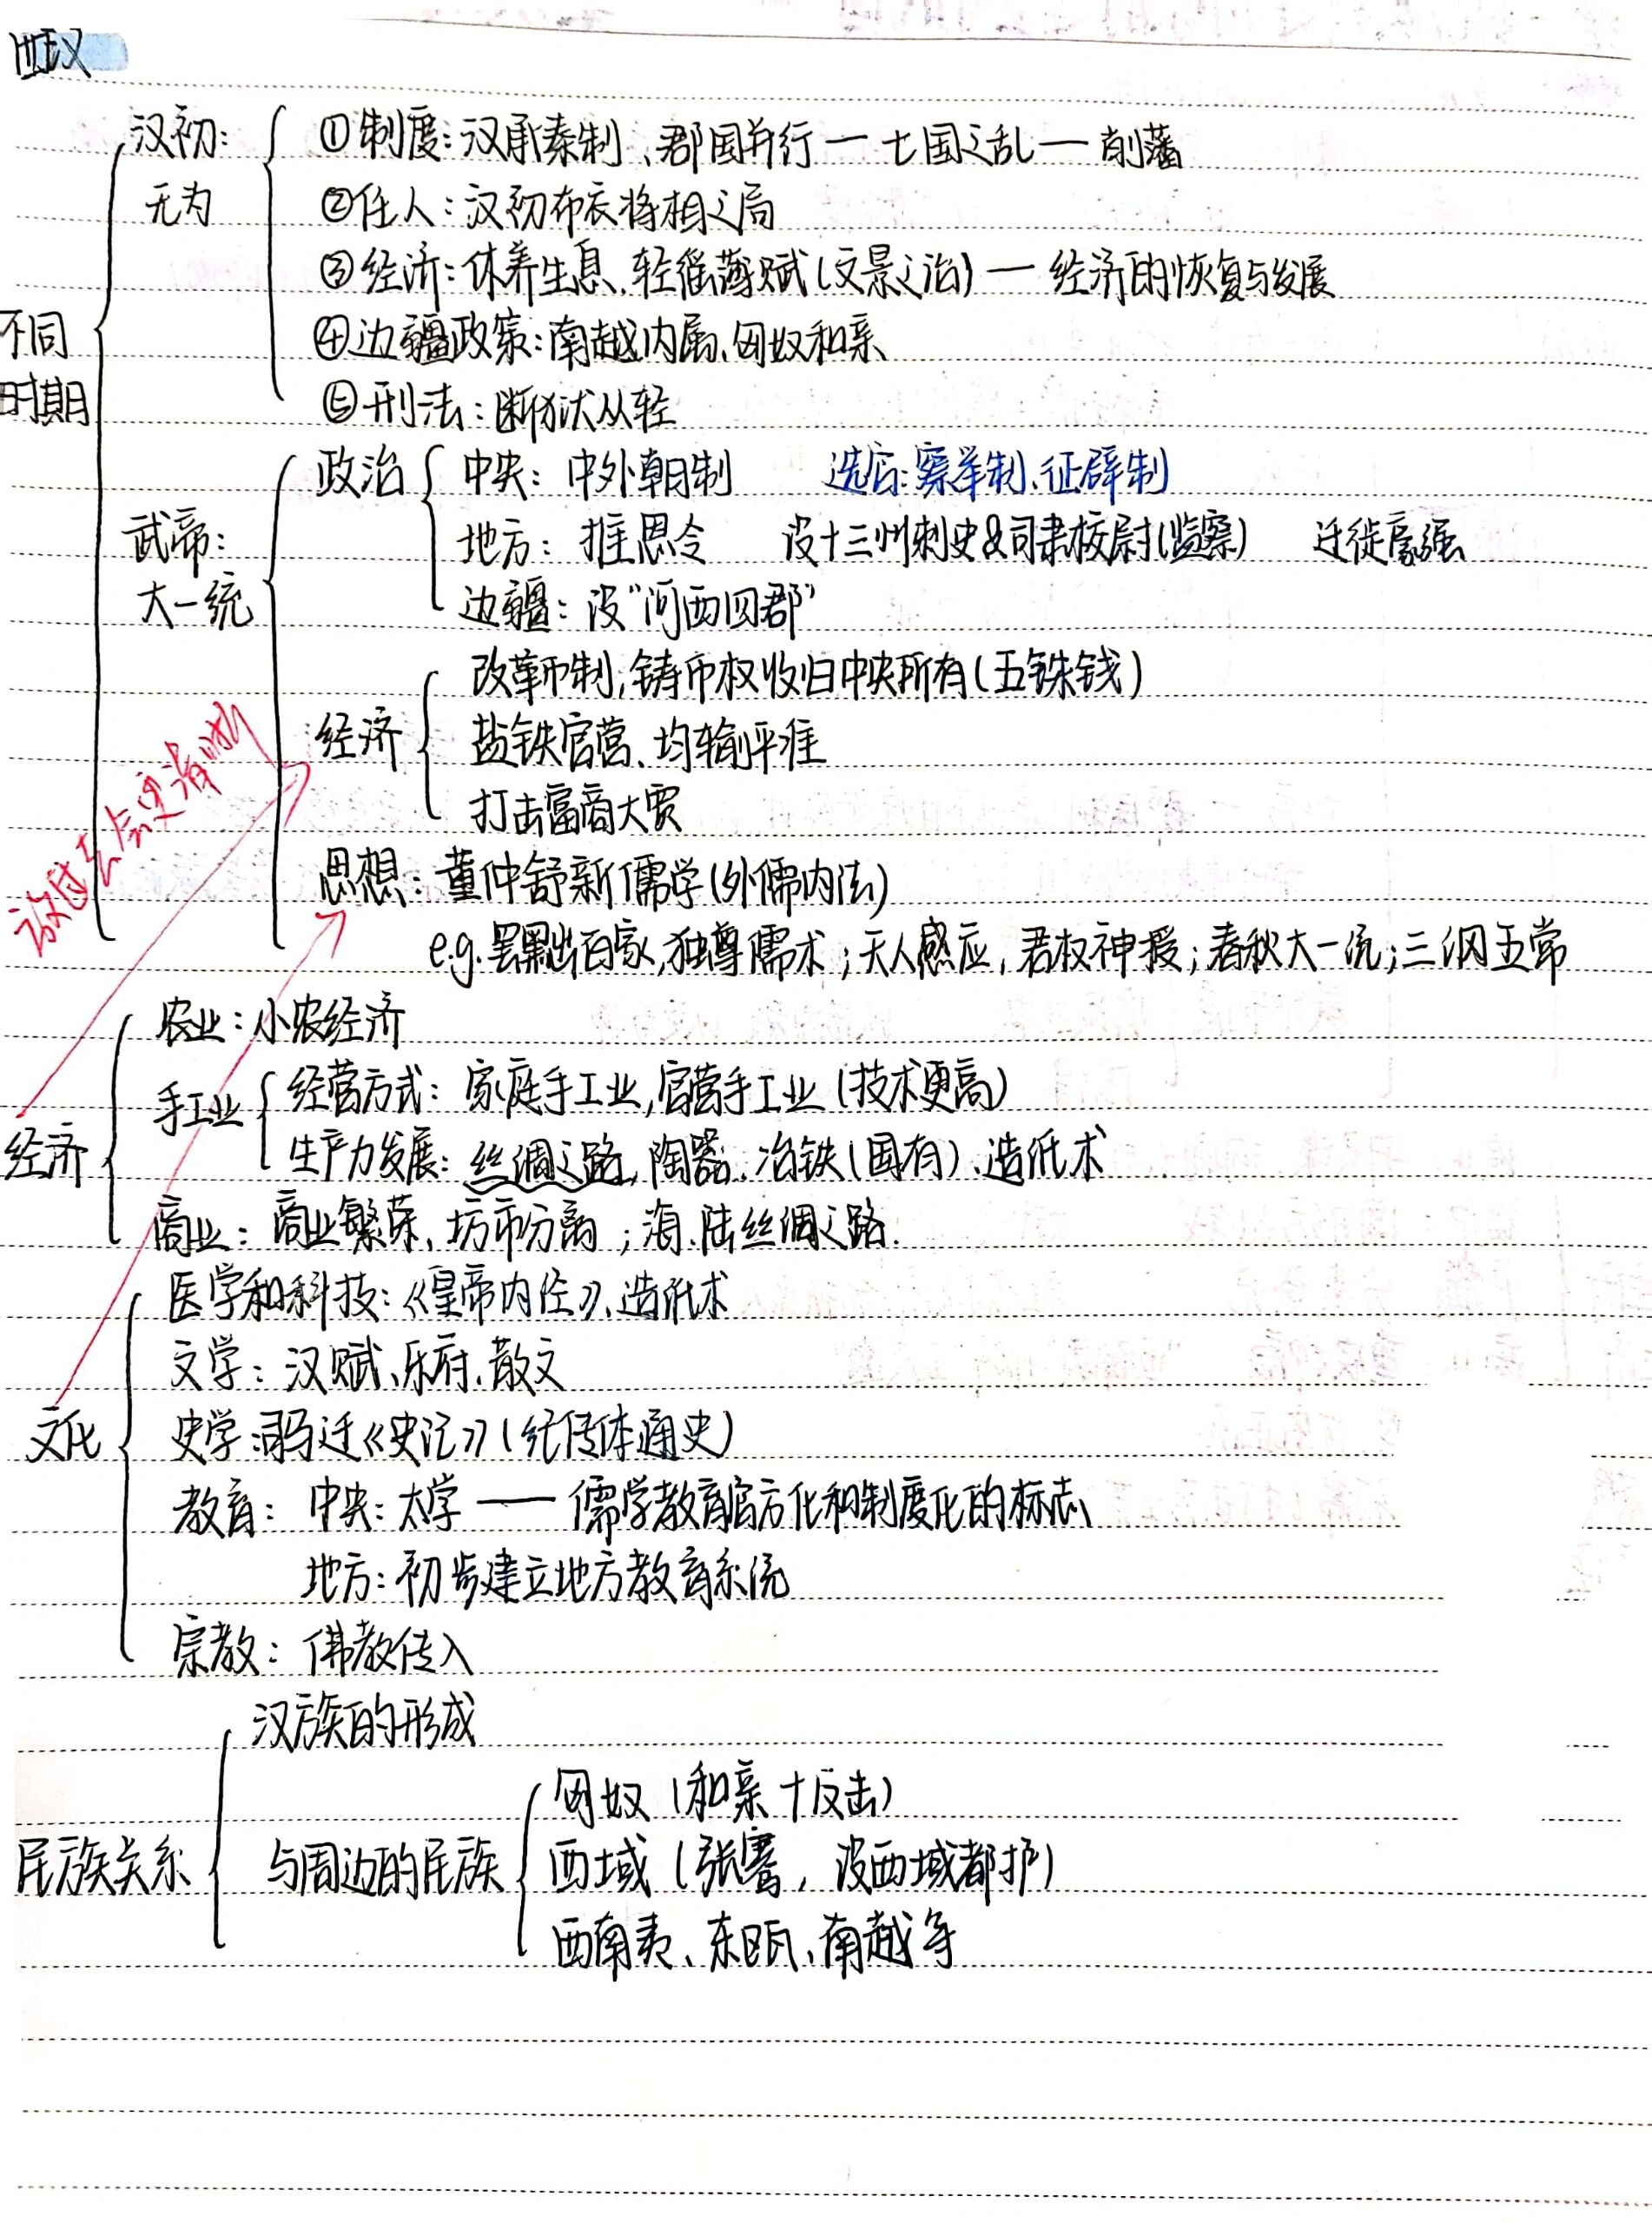 西汉
不同时期
汉初：无为
①制度：汉承秦制、郡国并行 — 七国之乱 — 削藩
②任人：汉初布衣将相之局
③经济：休养生息、轻徭薄赋(文景之治) — 经济的恢复与发展
④边疆政策：南越内属、匈奴和亲
⑤刑法：断狱从轻
武帝：大一统
政治
中央：中外朝制 选官：察举制、征辟制
地方：推恩令 设十三州刺史&司隶校尉(监察) 迁徙豪强
边疆：设“河西四郡”
经济
改革币制，铸币权收归中央所有(五铢钱)
盐铁官营、均输平准
打击富商大贾
思想：董仲舒新儒学(外儒内法)
e.g.罢黜百家，独尊儒术；天人感应，君权神授；春秋大一统；三纲五常
放过去会更清晰
经济
农业：小农经济
手工业
经营方式：家庭手工业，官营手工业(技术更高)
生产力发展：丝绸之路，陶器、冶铁(国有)、造纸术
商业：商业繁荣、坊市分离；海、陆丝绸之路.
文化
医学和科技：《皇帝内经》、造纸术
文学：汉赋、乐府、散文
史学：司马迁《史记》(纪传体通史)
教育：中央：太学 —— 儒学教育官方化和制度化的标志
地方：初步建立地方教育系统
宗教：佛教传入
民族关系
汉族的形成
与周边的民族
匈奴(和亲+反击)
西域(张骞，设西域都护)
西南夷、东瓯、南越等